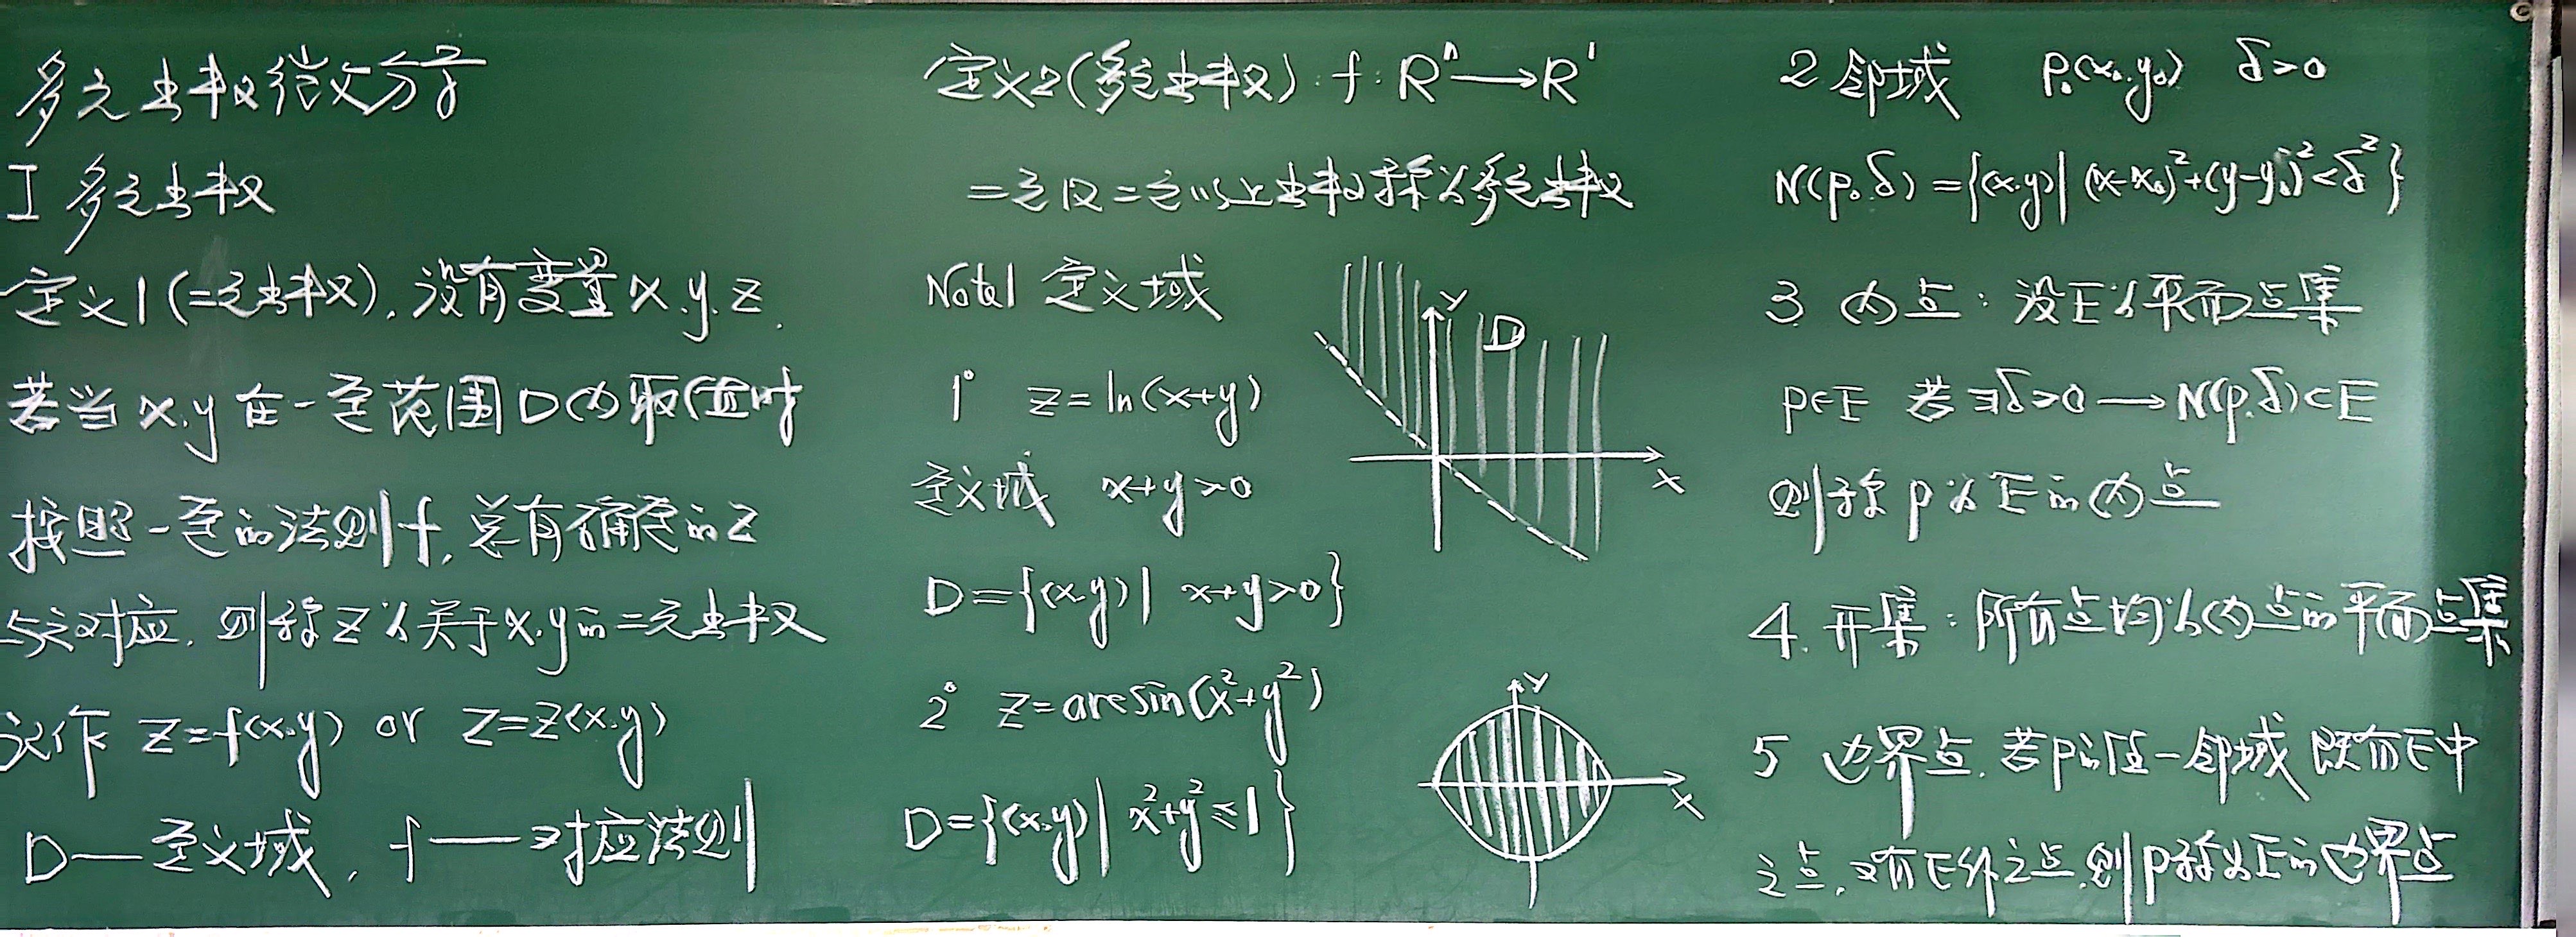 多元函数微分学
I 多元函数
定义1(二元函数).设有变量x.y.z.
若当x.y在一定范围D内取值时
按照一定的法则f,总有确定的z
与之对应.则称z为关于x.y的二元函数
记作 z=f(x.y) or z=z(x.y)
D—定义域, f——对应法则
定义2(多元函数): f: Rⁿ→R¹
二元及二元以上函数称为多元函数
Note1 定义域
1° z=ln(x+y)
定义域 x+y>0
D={(x.y)| x+y>0}
y
D
x
2° z=arcsin(x²+y²)
D={(x.y)| x²+y²≤1}
y
x
2 邻域 P₀(x₀.y₀) δ>0
N(P₀.δ)={(x.y)| (x-x₀)²+(y-y₀)²<δ²}
3 内点: 设E为平面点集
P∈E 若∃δ>0→N(P.δ)⊂E
则称P为E的内点
4. 开集: 所有点均为内点的平面点集
5 边界点. 若P的任一邻域 既有E中
之点,又有E外之点.则P称为E的边界点